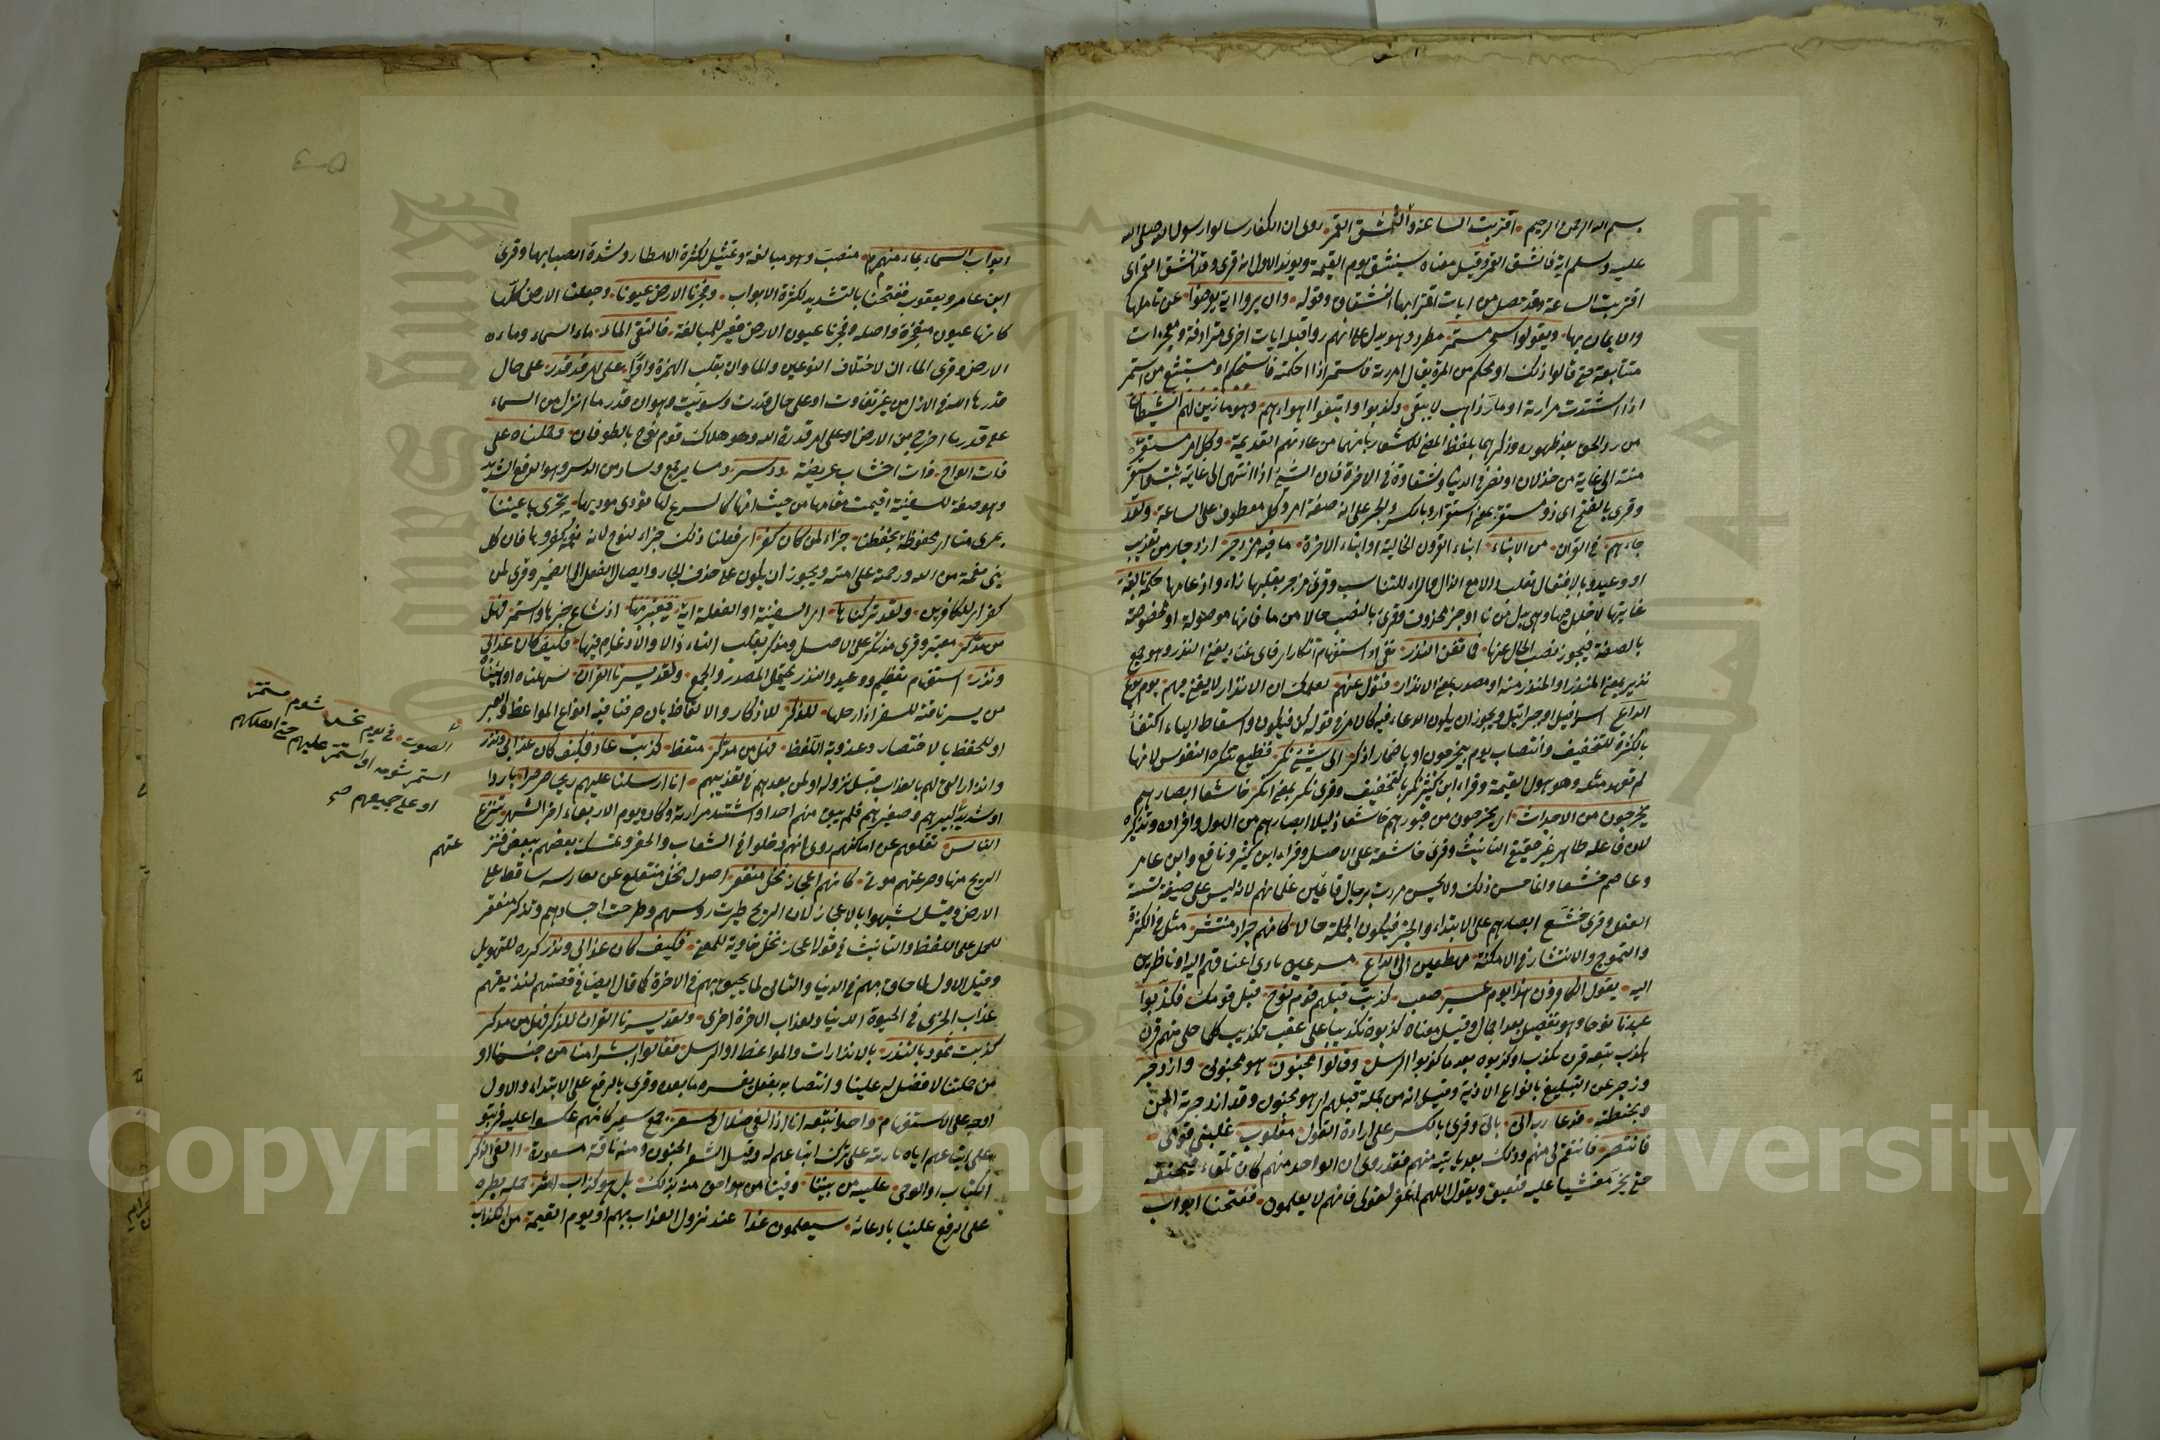 بسم الله الرحمن الرحيم اقتربت الساعة وانشق القمر روى ان الكفار سالوا رسول الله صلى الله
عليه وسلم اية فانشق القمر وقيل معناه سينشق يوم القيمة ويؤيد الاول انه قرئ وقد انشق القمر اى
اقتربت الساعة وقد حصل من ايات اقترابها انشقاق وقوله وان يروا اية يعرضوا عن تاملها
والايمان بها ويقولوا سحر مستمر مطرد وهو يدل على انهم رواقبله ايات اخرى مترادفة ومعجزات
متتابعة حتى قالوا ذلك او محكم من المرة يقال امررته فاستمر اذا احكمته فاستحكم او مستبشع من استمر
اذا اشتدت مرارته او مار ذاهب لا يبقى وكذبوا واتبعوا اهواءهم وهو ما زين لهم الشيطان
من رد الحق بعد ظهوره وذكرهما بلفظ المضى للاشعار بانهما من عادتهم القديمة وكل امر مستقر
منته الى غاية من خذلان او نصر فى الدنيا وشقاوة فى الاخرة فان الشئ اذا انتهى الى غايته ثبت واستقر
وقرئ بالفتح اى ذو مستقر بمعنى استقرار وبالكسر والجر على انه صفة امر وكل معطوف على الساعة ولقد
جاءهم فى القران من الانباء انباء القرون الخالية او انباء الاخرة ما فيه مزدجر ازدجار من تعذيب
او وعيد وتاء الافتعال تقلب دالا مع الدال والزاء للتناسب وقرئ مزجر بقلبها زاء وادغامها حكمة بالغة
غايتها لا خلل فيها وهى بدل من ما او خبر لمحذوف وقرئ بالنصب حالا من ما فانها موصولة او مخصوصة
بالصفة فيجوز نصب الحال عنها فما تغن النذر نفى او استفهام انكار اى فاى غناء يغنى النذر وهو جمع
نذير بمعنى المنذر او المنذر منه او مصدر بمعنى الانذار فتول عنهم لعلمك ان الانذار لا يغنى فيهم يوم يدع
الداع اسرافيل او جبرائيل ويجوز ان يكون الدعاء فيه كالامر فى قوله كن فيكون واسقاط الياء اكتفاء
بالكسرة للتخفيف وانتصاب يوم بيخرجون او باضمار اذكر الى شئ نكر فظيع تنكره النفوس لانها
لم تعهد مثله وهو هول القيمة وقراء ابن كثير نكر بالتخفيف وقرئ نكر بمعنى انكر خاشعا ابصارهم
يخرجون من الاجداث اى يخرجون من قبورهم خاشعا ذليلا ابصارهم من الهول وافراده وتذكيره
لان فاعله ظاهر غير حقيقى التانيث وقرئ خاشعة على الاصل وقراء ابن كثير ونافع وابن عامر
وعاصم خشعا وانما حسن ذلك ولا يحسن مررت برجال قائمين غلمانهم لانه ليس على صيغة تشبه
الفعل وقرئ خشع ابصارهم على الابتداء والخبر فيكون الجملة حالا كانهم جراد منتشر مثل فى الكثرة
والتموج والانتشار فى الامكنة مهطعين الى الداع مسرعين مادى اعناقهم اليه او ناظرين
اليه يقول الكافرون هذا يوم عسر صعب كذبت قبلهم قوم نوح قبل قومك فكذبوا
عبدنا نوحا وهو تفصيل بعد اجمال وقيل معناه كذبوه تكذيبا على عقب تكذيب كلما خلى منهم قرن
مكذب تبعه قرن مكذب او كذبوه بعد ما كذبوا الرسل وقالوا مجنون هو مجنون وازدجر
وزجر عن التبليغ بانواع الاذية وقيل انه من جملة قيلهم اى هو مجنون وقد ازدجرته الجن
وتخبطته فدعا ربه انى بانى وقرئ بالكسر على ارادة القول مغلوب غلبنى قومى
فانتصر فانتقم لى منهم وذلك بعد ياسه منهم فقد روى ان الواحد منهم كان تلقاه فيخنقه
حتى يخر مغشيا عليه فيفيق ويقول اللهم اغفر لقومى فانهم لا يعلمون ففتحنا ابواب
ابواب السماء بماء منهمر منصب وهو مبالغة وتمثيل لكثرة الامطار وشدة انصبابها وقرئ
ابن عامر ويعقوب ففتحنا بالتشديد لكثرة الابواب وفجرنا الارض عيونا وجعلنا الارض كلها
كانها عيون متفجرة واصله وفجرنا عيون الارض فغير للمبالغة فالتقى الماء ماء السماء وماء
الارض وقرئ الماءان لاختلاف النوعين والماوان بقلب الهمزة واوا على امر قد قدر على حال
قدرها الله فى الازل من غير تفاوت او على حال قدرت وسويت وهو ان قدر ما انزل من السماء
على قدر ما اخرج من الارض او على امر قدره الله وهو هلاك قوم نوح بالطوفان وحملناه على
ذات الواح ذات اخشاب عريضة ودسر ومسامير جمع دسار من الدسر وهو الدفع الشديد
وهو صفة للسفينة اقيمت مقامها من حيث انها كالشرح لها تؤدى موديها تجرى باعيننا
بمرءى منا اى محفوظة بحفظنا جزاء لمن كان كفر اى فعلنا ذلك جزاء لنوح لانه نعمة كفروها فان كل
نبى نعمة من الله ورحمة على امته ويجوز ان يكون على حذف الجار وايصال الفعل الى الضمير وقرئ لمن
كفر اى للكافرين ولقد تركناها اى السفينة او الفعلة اية يعتبر بها اذ شاع خبرها واستمر فهل
من مدكر معتبر وقرئ مذتكر على الاصل ومذكر بقلب التاء ذالا والادغام فيها فكيف كان عذابى
ونذر استفهام تعظيم ووعيد والنذر يحتمل المصدر والجمع ولقد يسرنا القران سهلناه او هيئناه
من يسر ناقته للسفر اذا رحلها للذكر للاذكار والاتعاظ بان صرفنا فيه انواع المواعظ والعبر
او للحفظ بالاختصار وعذوبة اللفظ فهل من مدكر متعظ كذبت عاد فكيف كان عذابى ونذر
وانذاراتى لهم بالعذاب قبل نزوله او لمن بعدهم فى تعذيبهم انا ارسلنا عليهم ريحا صرصرا باردا
او شديد كبيرهم وصغيرهم فلم يبق منهم احدا او اشتد مرارته وكان يوم الاربعاء اخر الشهر تنزع
الناس تقلعهم عن اماكنهم روى انهم دخلوا فى الشعاب والحفر وتمسك بعضهم ببعض فنزعتهم
الريح منها وصرعتهم موتى كانهم اعجاز نخل منقعر اصول نخل منقلع عن مغارسه ساقط على
الارض وقيل شبهوا بالاعجاز لان الريح طيرت رؤسهم وطرحت اجسادهم وتذكير منقعر
للحمل على اللفظ والتانيث فى قوله اعجاز نخل خاوية للمعنى فكيف كان عذابى ونذر كرره للتهويل
وقيل الاول لما حاق بهم فى الدنيا والثانى لما يحيق بهم فى الاخرة كما قال ايضا فى قصتهم لنذيقهم
عذاب الخزى فى الحيوة الدنيا ولعذاب الاخرة اخزى ولقد يسرنا القران للذكر فهل من مدكر
كذبت ثمود بالنذر بالانذارات والمواعظ او الرسل فقالوا ابشرا منا من جنسنا او
من جملتنا لا فضل له علينا وانتصابه بفعل يفسره ما بعده وقرئ بالرفع على الابتداء والاول
اوجه على الاستفهام واحدا نتبعه انا اذا لفى ضلال وسعر جمع سعير كانهم عكسوا عليه فرتبوا
على اتباعهم اياه ما رتبه على ترك اتباعهم له وقيل السعر الجنون ومنه ناقة مسعورة االقى الذكر
الكتاب او الوحى عليه من بيننا وفينا من هو احق منه بذلك بل هو كذاب اشر حمله بطره
على الترفع علينا بادعائه سيعلمون غدا عند نزول العذاب بهم او يوم القيمة من الكذاب
الصوت فى يوم نحس شوم مستمر
استمر شومه او استمر عليهم حتى اهلكهم
او على جميعهم صح
Copyright King Saud University